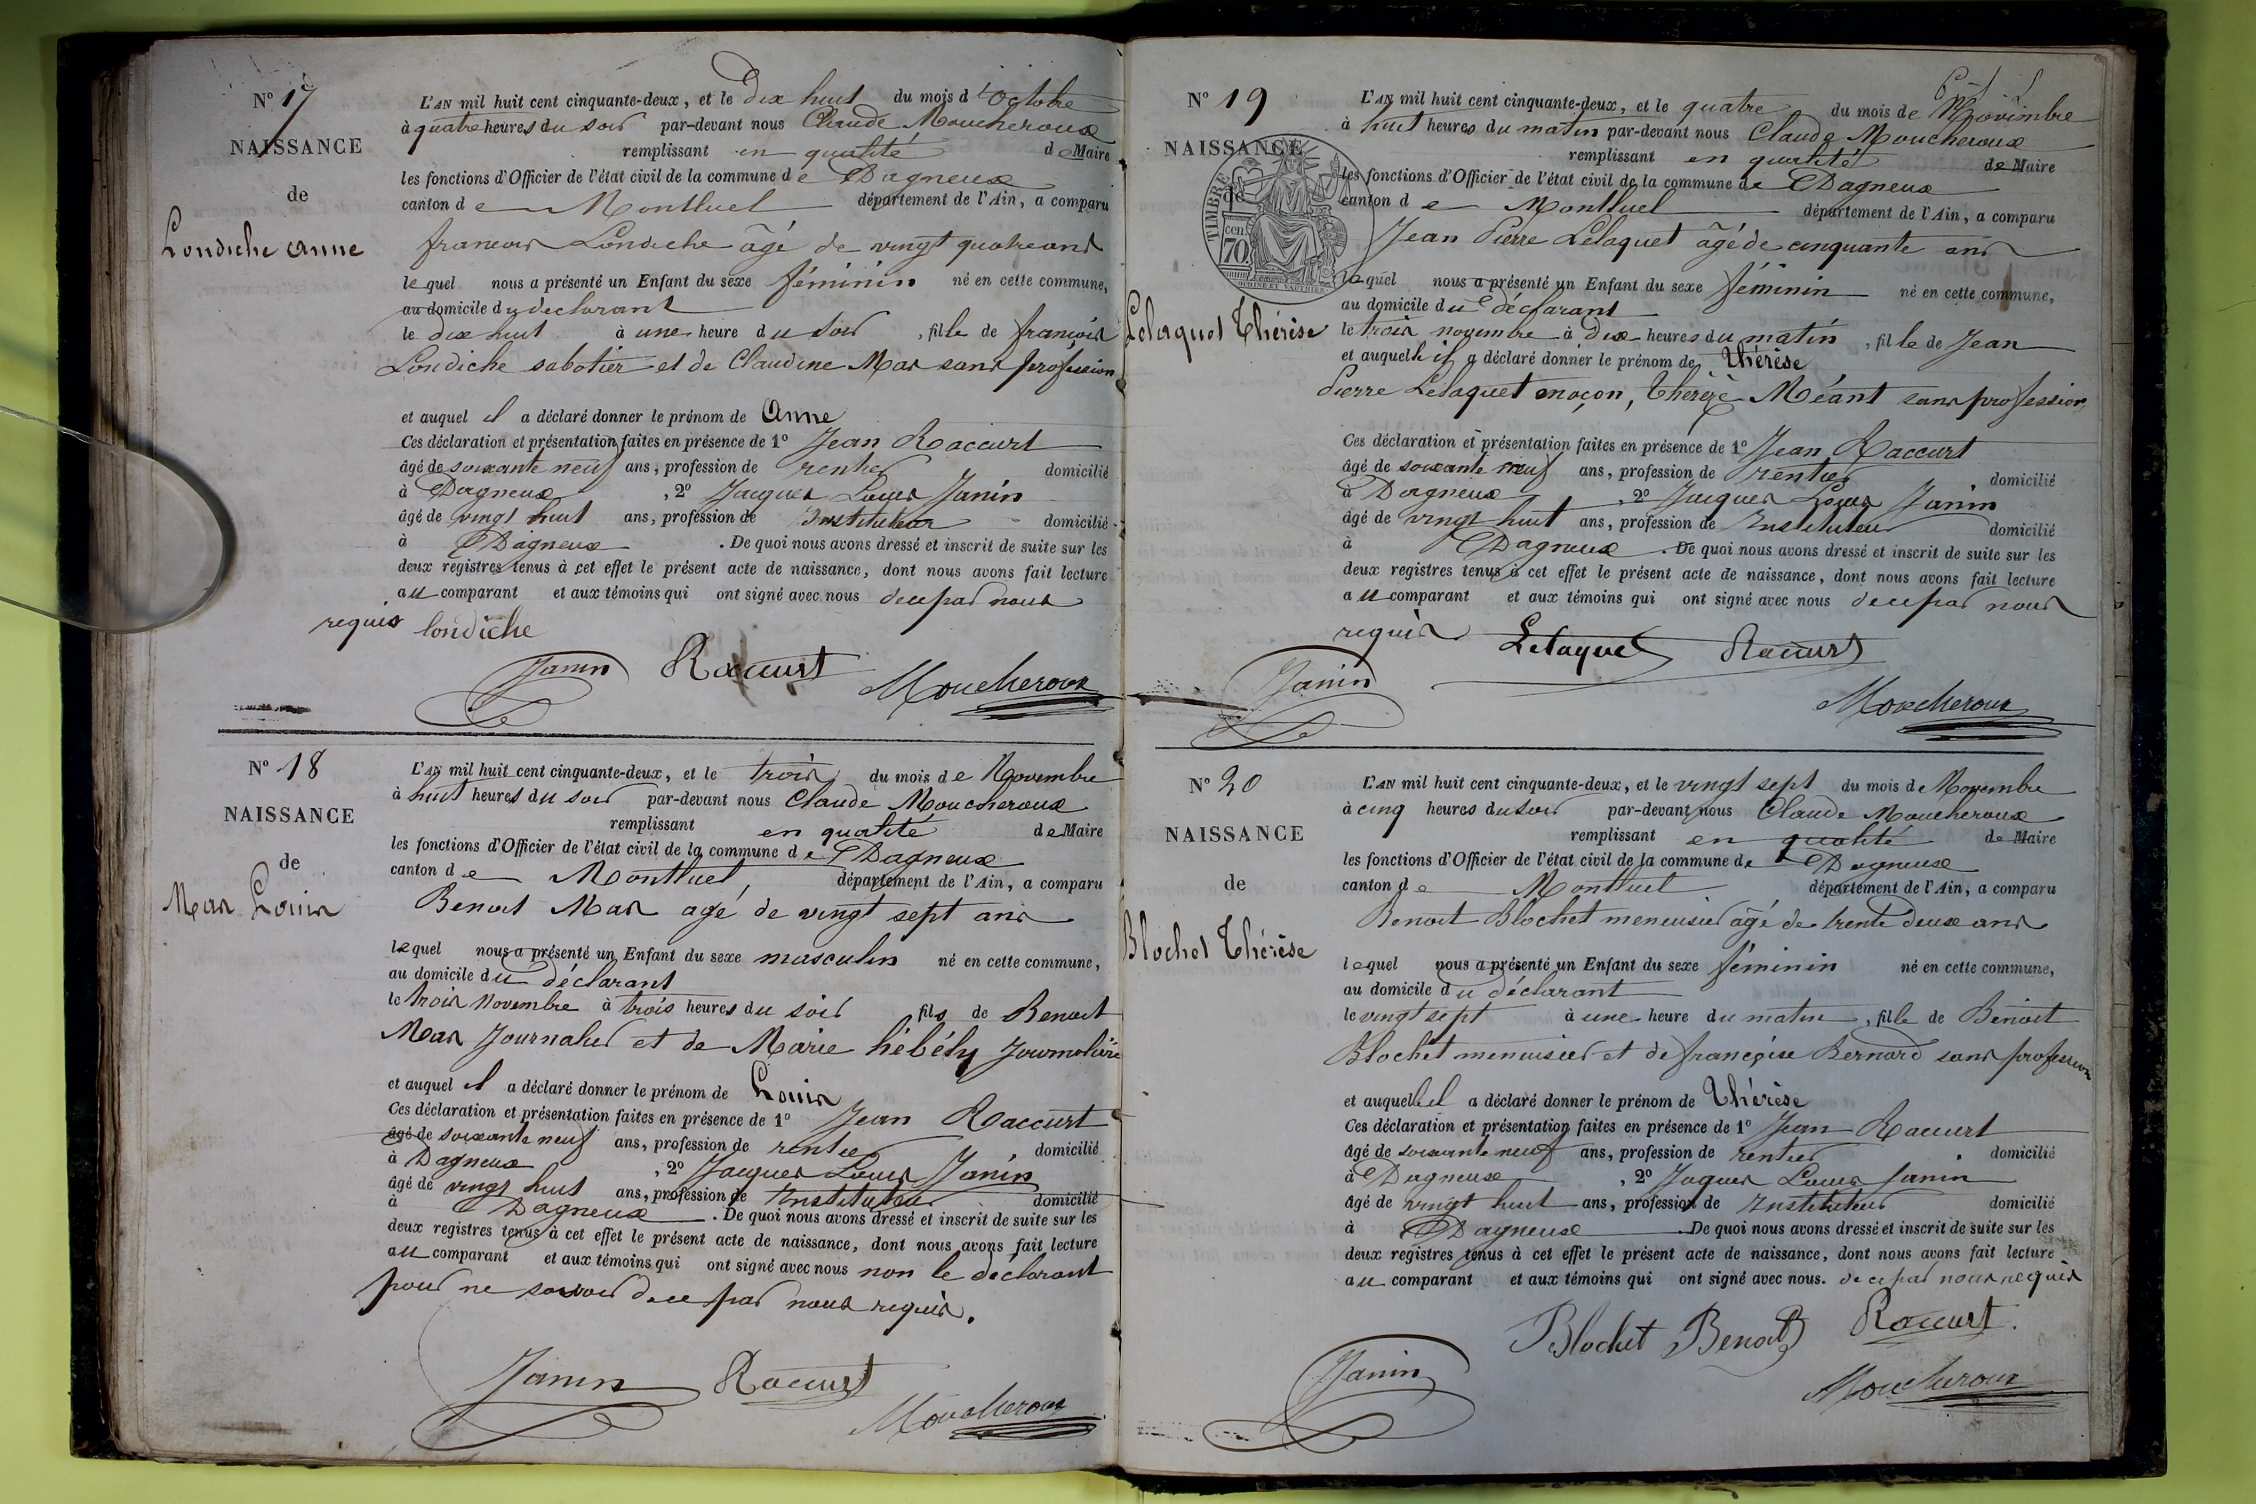 Nº 17
NAISSANCE
de
Londiche Anne
L'AN mil huit cent cinquante-deux, et le dix huit du mois d'Octobre
à quatre heures du soir par-devant nous Claude Moucheroux
remplissant en qualité de Maire
les fonctions d'Officier de l'état civil de la commune de Dagneux
canton de Montluel département de l'Ain, a comparu
francois Londiche âgé de vingt quatre ans
lequel nous a présenté un Enfant du sexe féminin né en cette commune,
au domicile du declarant
le dix huit à une heure du soir, fille de françois
Londiche sabotier et de Claudine Mas sans profession
et auquel il a déclaré donner le prénom de Anne
Ces déclaration et présentation faites en présence de 1º Jean Raccurt
âgé de soixante neuf ans, profession de rentier domicilié
à Dagneux, 2º Jacques Louis Janin
âgé de vingt huit ans, profession de Instituteur domicilié
à Dagneux. De quoi nous avons dressé et inscrit de suite sur les
deux registres tenus à cet effet le présent acte de naissance, dont nous avons fait lecture
au comparant et aux témoins qui ont signé avec nous de ce par nous
requis londiche
Janin Raccurt Moucheroux
Nº 18
NAISSANCE
de
Mas Louis
L'AN mil huit cent cinquante-deux, et le trois du mois de Novembre
à huit heures du soir par-devant nous Claude Moucheroux
remplissant en qualité de Maire
les fonctions d'Officier de l'état civil de la commune de Dagneux
canton de Montluel, département de l'Ain, a comparu
Benoit Mas agé de vingt sept ans
lequel nous a présenté un Enfant du sexe masculin né en cette commune,
au domicile du déclarant
le trois Novembre à trois heures du soir fils de Benoit
Mas Journalier et de Marie hébély Journalière
et auquel il a déclaré donner le prénom de Louis
Ces déclaration et présentation faites en présence de 1º Jean Raccurt
âgé de soixante neuf ans, profession de rentier domicilié
à Dagneux, 2º Jacques Louis Janin
âgé de vingt huit ans, profession de Instituteur domicilié
à Dagneux. De quoi nous avons dressé et inscrit de suite sur les
deux registres tenus à cet effet le présent acte de naissance, dont nous avons fait lecture
au comparant et aux témoins qui ont signé avec nous non le déclarant
pour ne savoir de ce par nous requis.
Janin Raccurt
Moucheroux
Nº 19
NAISSANCE
de
TIMBRE
cen
70
Lelaquet Thérèse
L'AN mil huit cent cinquante-deux, et le quatre du mois de Novembre
à huit heures du matin par-devant nous Claude Moucheroux
remplissant en qualité de Maire
les fonctions d'Officier de l'état civil de la commune de Dagneux
canton de Montluel département de l'Ain, a comparu
Jean Pierre Lelaquet âgé de cinquante ans
lequel nous a présenté un Enfant du sexe féminin né en cette commune,
au domicile du déclarant
le trois novembre à dix heures du matin, fille de Jean
et auquelle il a déclaré donner le prénom de Thérèse
Pierre Lelaquet maçon, Thérèze Méant sans profession
Ces déclaration et présentation faites en présence de 1º Jean Raccurt
âgé de soixante neuf ans, profession de rentier domicilié
à Dagneux, 2º Jacques Louis Janin
âgé de vingt huit ans, profession de Instituteur domicilié
à Dagneux. De quoi nous avons dressé et inscrit de suite sur les
deux registres tenus à cet effet le présent acte de naissance, dont nous avons fait lecture
au comparant et aux témoins qui ont signé avec nous de ce par nous
requis Lelaquet Raccurt
Janin
Moucheroux
Nº 20
NAISSANCE
de
Blochet Thérèse
L'AN mil huit cent cinquante-deux, et le vingt sept du mois de Novembre
à cinq heures du soir par-devant nous Claude Moucheroux
remplissant en qualité de Maire
les fonctions d'Officier de l'état civil de la commune de Dagneux
canton de Montluel département de l'Ain, a comparu
Benoit Blochet menuisier âgé de trente deux ans
lequel nous a présenté un Enfant du sexe féminin né en cette commune,
au domicile du déclarant
le vingt sept à une heure du matin, fille de Benoit
Blochet menuisier et de françoise Bernard sans profession
et auquelle il a déclaré donner le prénom de Thérèse
Ces déclaration et présentation faites en présence de 1º Jean Raccurt
âgé de soixante neuf ans, profession de rentier domicilié
à Dagneux, 2º Jaques Louis Janin
âgé de vingt huit ans, profession de Instituteur domicilié
à Dagneux. De quoi nous avons dressé et inscrit de suite sur les
deux registres tenus à cet effet le présent acte de naissance, dont nous avons fait lecture
au comparant et aux témoins qui ont signé avec nous. de ce par nous requis
Blochet Benoit Raccurt.
Janin
Moucheroux